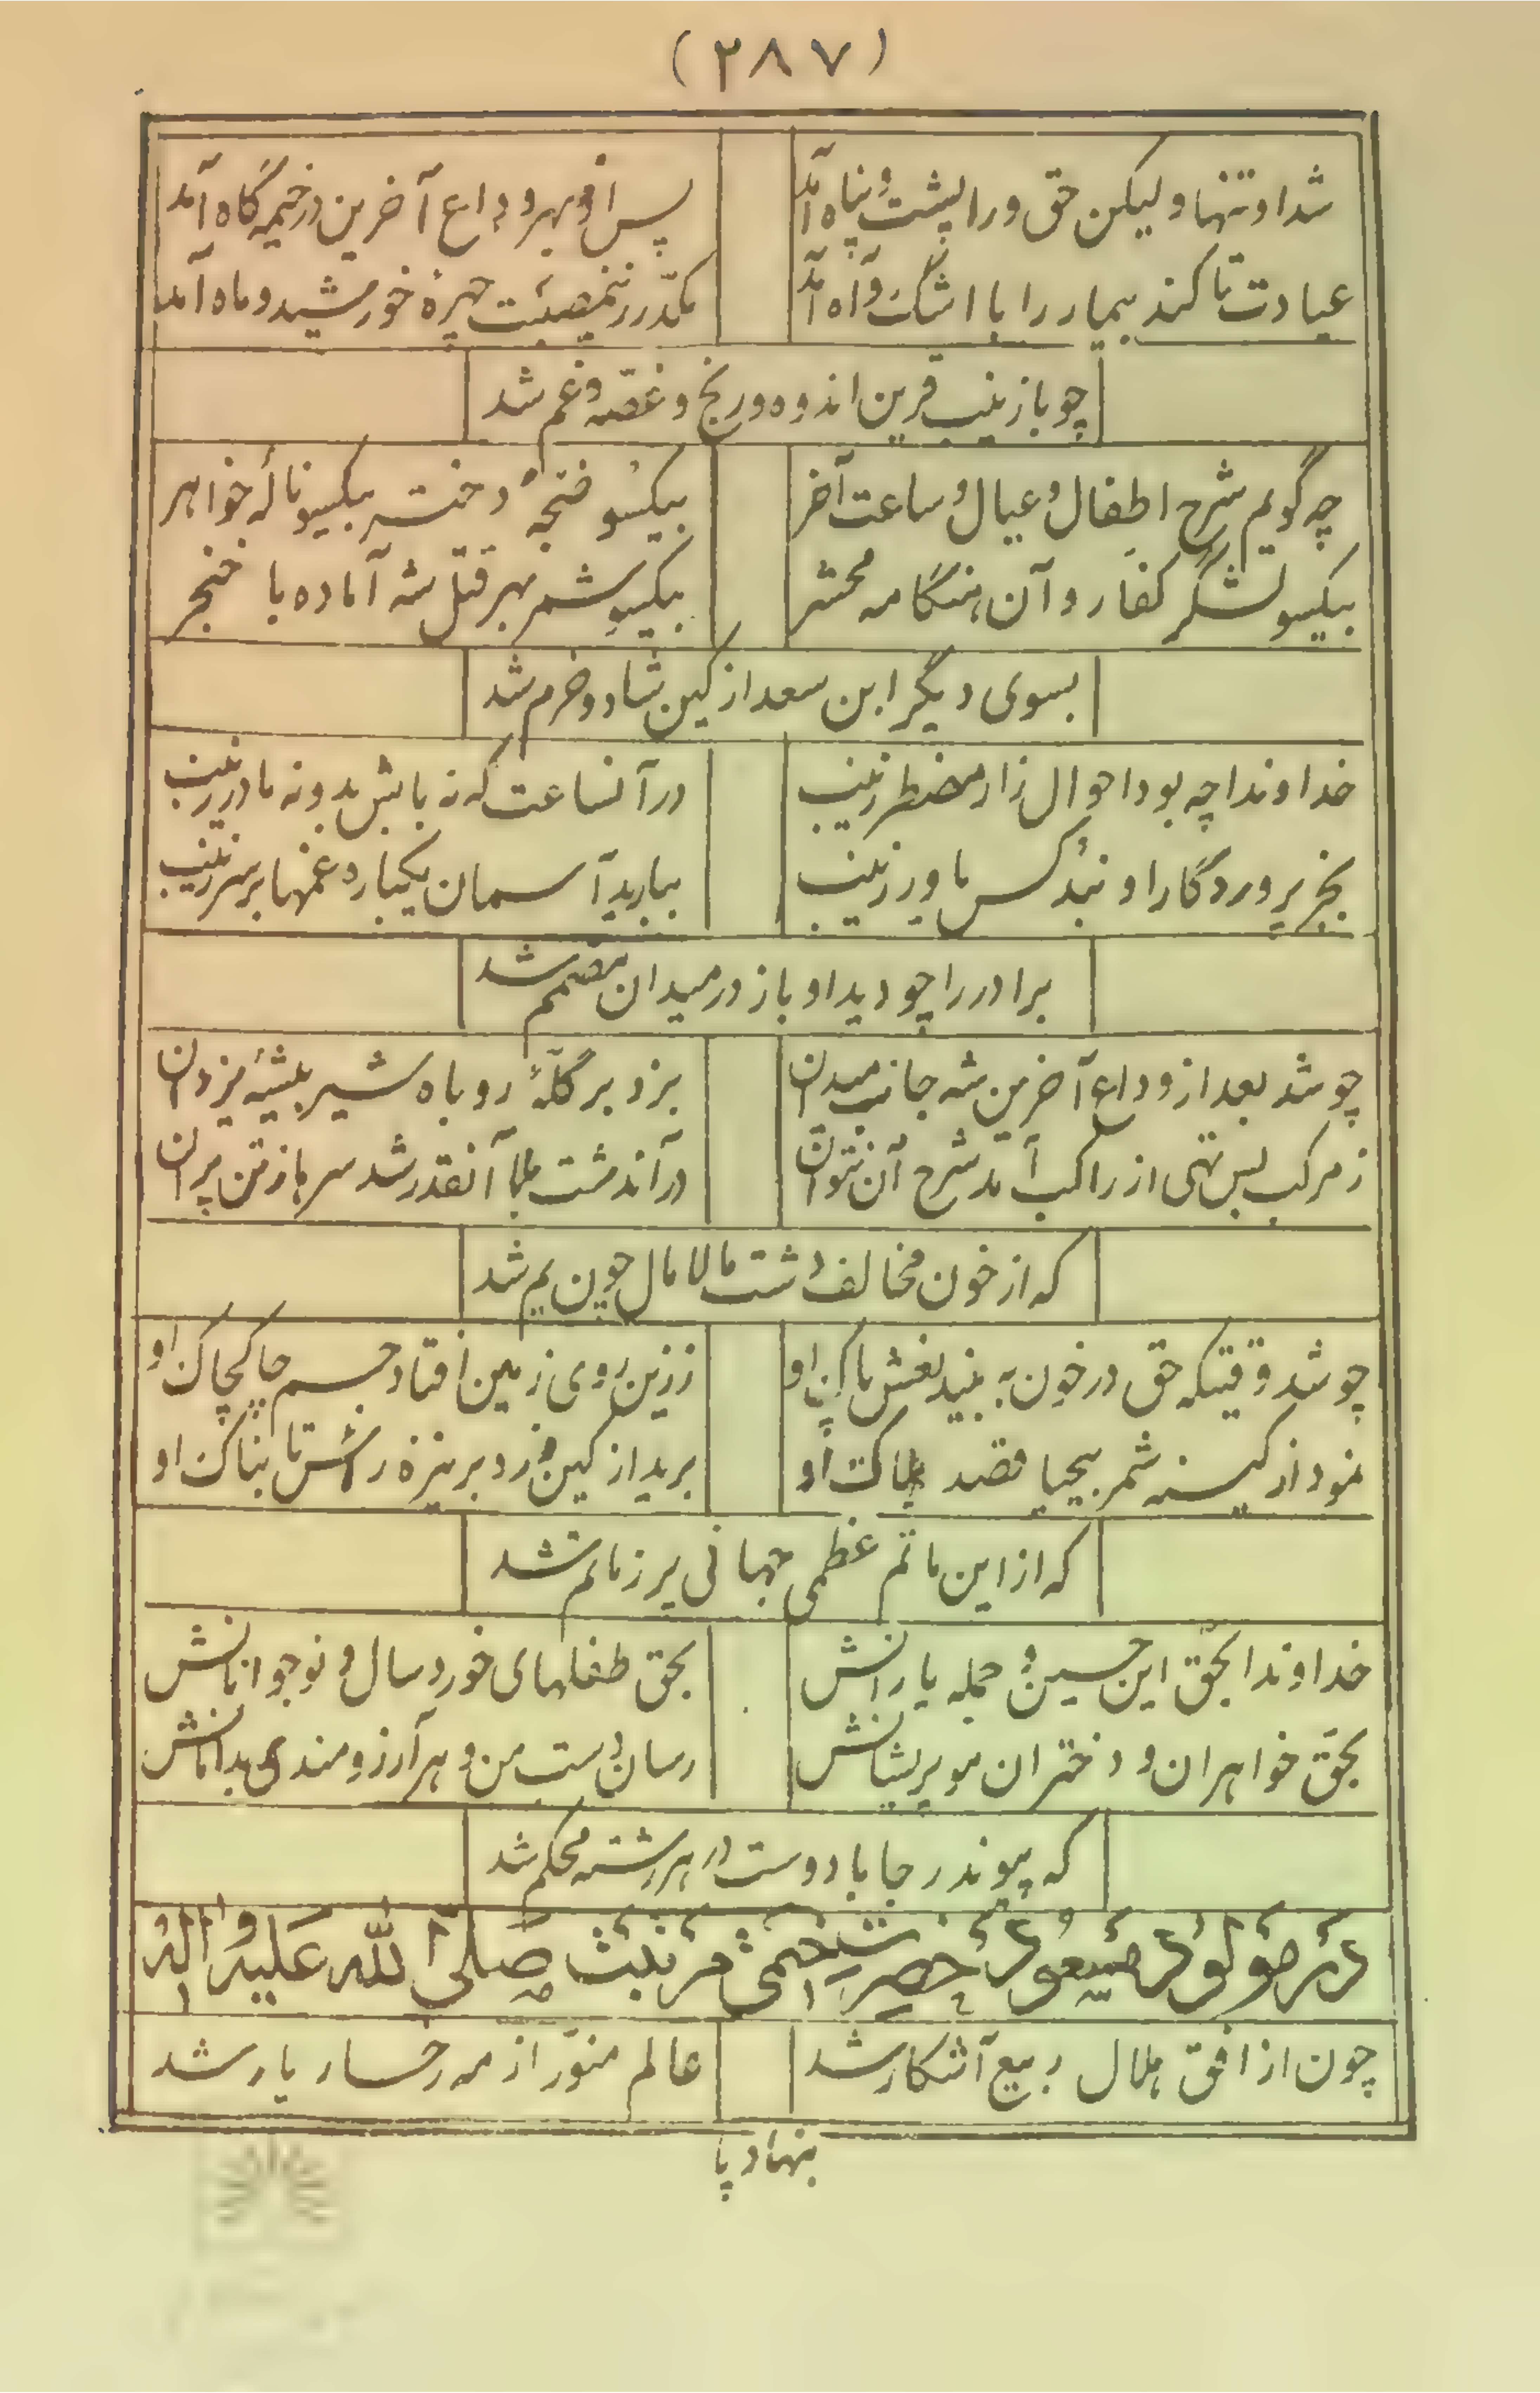 (۲۸۷)
شد او تنها ولیکن حق ورا پشت و پناه آمد پس او بهر وداع آخرین در خیمه گاه آمد
عیادت تا کند بیمار را با اشک و آه آمد مکدر زینمصیبت چهرهٔ خورشید و ماه آمد
چو با زینب قرین اندوه و رنج و غصّه و غم شد
چه گویم شرح اطفال و عیال و ساعت آخر بیکسو ضجهٔ دختر بیکسو نالهٔ خواهر
بیکسو لشگر کفار و آن هنگامه محشر بیکسو شمر بهر قتل شه آماده با خنجر
بسوی دیگر ابن سعد از کین شاد و خرم شد
خداوندا چه بود احوال زار مضطر زینب در آنساعت که نه بابش بدو نه مادر زینب
بجز پروردگار او نبد کس یاور زینب ببارید آسمان یکباره غمها بر سر زینب
برادر را چو دید او باز در میدان مصمّم شد
چو شد بعد از وداع آخرین شه جانب میدان بزد بر گلّهٔ روباه شیر بیشهٔ یزدان
ز مرکب بس تهی از راکب آمد شرح آن نتوان در آندشت بلا آنقدر شد سرها ز تن پران
که از خون مخالف دشت مالامال چون یم شد
چو شد وقتیکه حق در خون به بیند نعش پاک او ززین روی زمین افتاد جسم چاکچاک او
نمود از کینه شمر بیحیا قصد هلاک او برید از کین و زد بر نیزه رأس تابناک او
که از این ماتم عظمی جهانی پر ز ماتم شد
خداوندا بحق این حسین و جمله یارانش بحق طفلهای خوردسال و نوجوانانش
بحق خواهران و دختران مو پریشانش رسان دست من و هر آرزومندی بدامانش
که پیوند رجا با دوست در هر رشته محکم شد
در مولود مسعود حضرت ختمی مرتبت صلی الله علیه و اله
چون از افق هلال ربیع آشکار شد عالم منوّر از مه رخسار یار شد
بنهاد پا